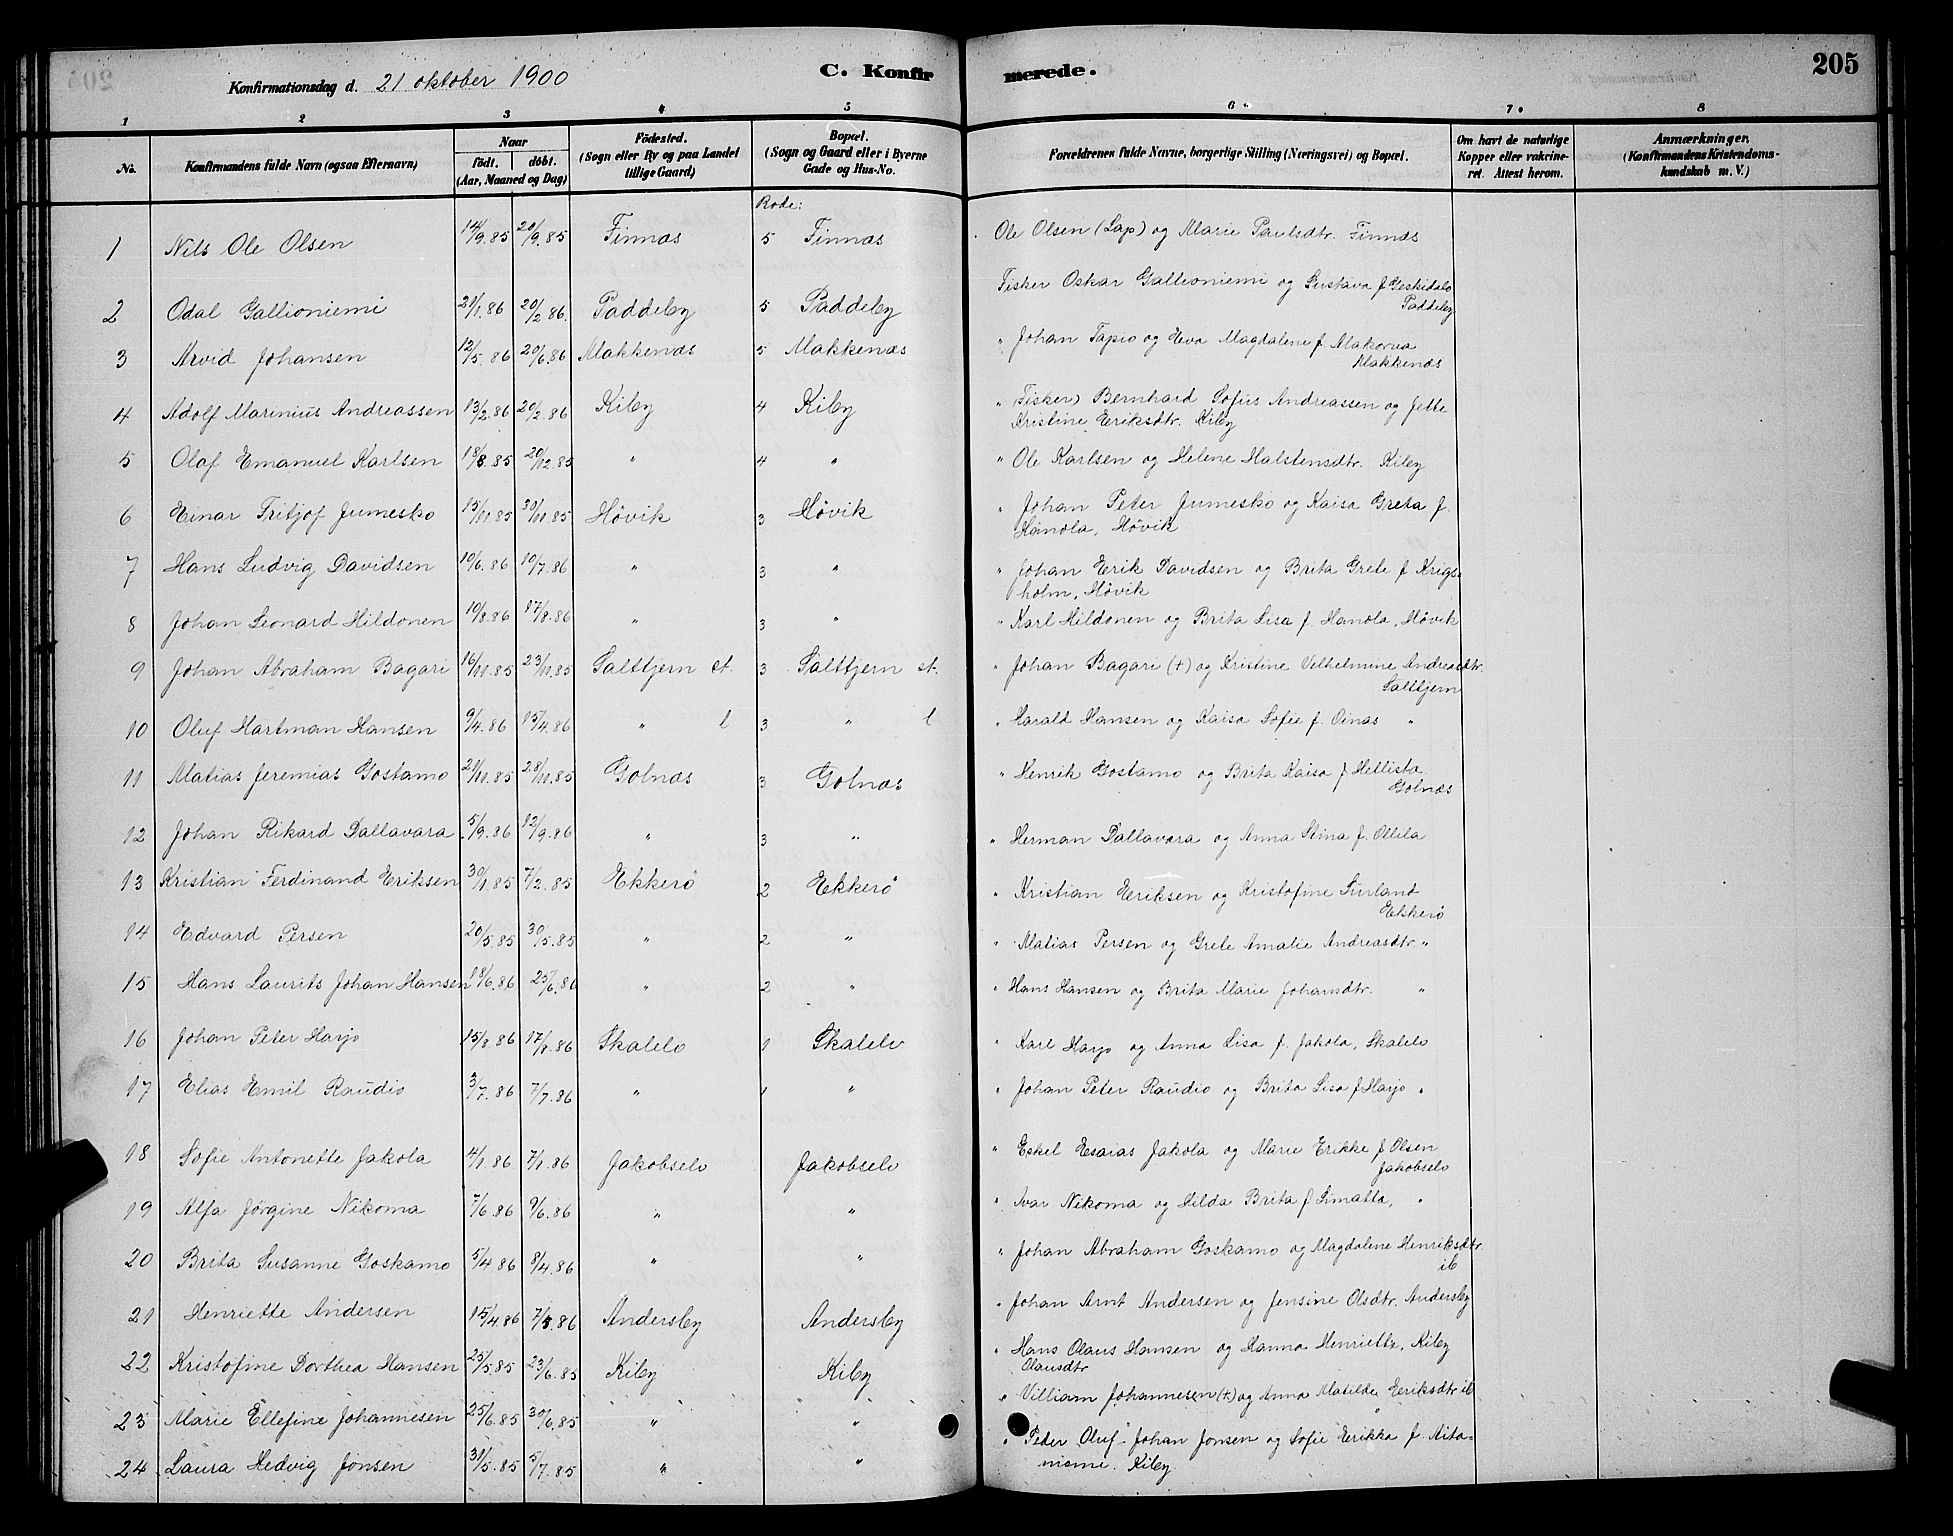 Konfirmationsdag d. 21 oktober 1900 C. Konfirmerede. 205
1 2 3 4 5 6. 7. 8
No. Konfirmandens fulde Navn (ogsaa Efternavn) Naar födt. döbt. (Aar, Maaned og Dag) Födested. (Sogn eller By og paa Landet tillige Gaard) Bopæl. (Sogn og Gaard eller i Byerne Gade og Hus-No. Forældrenes fulde Navne, borgerlige Stilling (Næringsvei) og Bopæl. Om havt de naturlige Kopper eller vakcineret. Attest herom. Anmærkninger. (Konfirmandens Kristendomskundskab m. V.)
Rode:
1 Nils Ole Olsen 14/9.85 20/9.85 Finnæs 5 Finnæs Ole Olsen (Lap) og Marie Paulsdtr. Finnæs
2 Odal Gallioniemi 21/1.86 20/2 86. Paddeby 5 Paddeby Fisker Oskar Gallioniemi og Gustava f Geskidalo
Paddeby
3 Arvid Johansen 12/5.86 20/6.86 Makkenæs 5 Makkenæs " Johan Tapio og Eva Magdalene f. Makorva
Makkenæs
4 Adolf Marinius Andreassen 13/2.86 20/2.86 Kiby 4 Kiby " Fisker) Bernhard Sofus Andreassen og Jette
Kristine Eriksdtr. Kiby
5 Olaf Emanuel Karlsen 18/8.85 20/12.85 " 4 " " Ole Karlsen og Helene Halstensdtr. Kiby
6 Einar Fritjof Jumesko 15/11.85 30/11.85 Høvik 3 Høvik " Johan Peter Jumesko og Kaisa Greta f.
Hanola, Høvik
7 Hans Ludvig Davidsen 10/6.86 10/7.86 " 3 " " Johan Erik Davidsen og Brita Grete f Krigs-
holm, Høvik
8 Johan Leonard Hildonen 10/8.86 17/8.86 " 3 " " Karl Hildonen og Brita Lisa f. Hanola, Høvik
9 Johan Abraham Bagari 16/11.85 23/11.85 Saltfjern st. 3 Saltfjern st. " Johan Bagari (+) og Kristine Vilhelmine Andreasdtr.
Saltfjern
10 Oluf Hartman Hansen 9/4.86 15/4.86 " l 3 " l " Harald Hansen og Kaisa Sofie f. Oinas "
11 Matias Jeremias Gostamo 21/11.85 28/11.85 Golnæs 3 Golnæs " Henrik Gostamo og Brita Kaisa f Hellista
Golnæs
12 Johan Rikard Dallavara 5/9.86 12/9.86 " 3 " " Herman Dallavara og Anna Stina f. Ollila
13 Kristian Ferdinand Eriksen 30/1.85 7/2.85 Ekkerö 2 Ekkerö " Kristian Eriksen og Kristofine Sirland
Ekkerö
14 Edvard Persen 20/5.85 30/5.85 " 2 " " Matias Persen og Grete Amalie Andreasdtr "
15 Hans Laurits Johan Hansen 18/6.86 25/6.86 " 2 " " Hans Hansen og Brita Marie Johansdtr. "
16 Johan Peter Harjo 15/8.86 17/8.86 Skalelv 1 Skalelv " Karl Harjo og Anna Lisa f. Jakola, Skalelv
17 Elias Emil Raudio 3/7.86 7/7.86 " 1 " " Johan Peter Raudio og Brita Lisa f Harjo "
18 Sofie Antonette Jakola 4/1.86 7/1.86 Jakobselv Jakobselv " Eskel Esaias Jakola og Marie Erikke f Olsen
Jakobselv
19 Alfa Jörgine Nikoma 7/6.86 9/6.86 " " " Ivar Nikoma og Hilda Brita f Simatta, "
20 Brita Susanne Goskamo 5/4 86 8/4.86 " " " Johan Abraham Goskamo og Magdalene Henriksdtr.
ib
21 Henriette Andersen 15/4.86 7/5.86 Andersby Andersby " Johan Arnt Andersen og Jensine Olsdtr. Andersby
22 Kristofine Dorthea Hansen 25/5.85 23/6.85 Kiby Kiby " Hans Olaus Hansen og Hanna Henriette, Kiby
Olausdtr
23 Marie Ellefine Johannesen 25/6.85 30/6.85 " " " Villiam Johannesen (+) og Anna Matilde Eriksdtr ib
24 Laura Hedvig Jonsen 31/5.85 5/7.85 " " " Peder Oluf Johan Jonsen og Sofie Erikka f. Aita-
niemi. Kiby